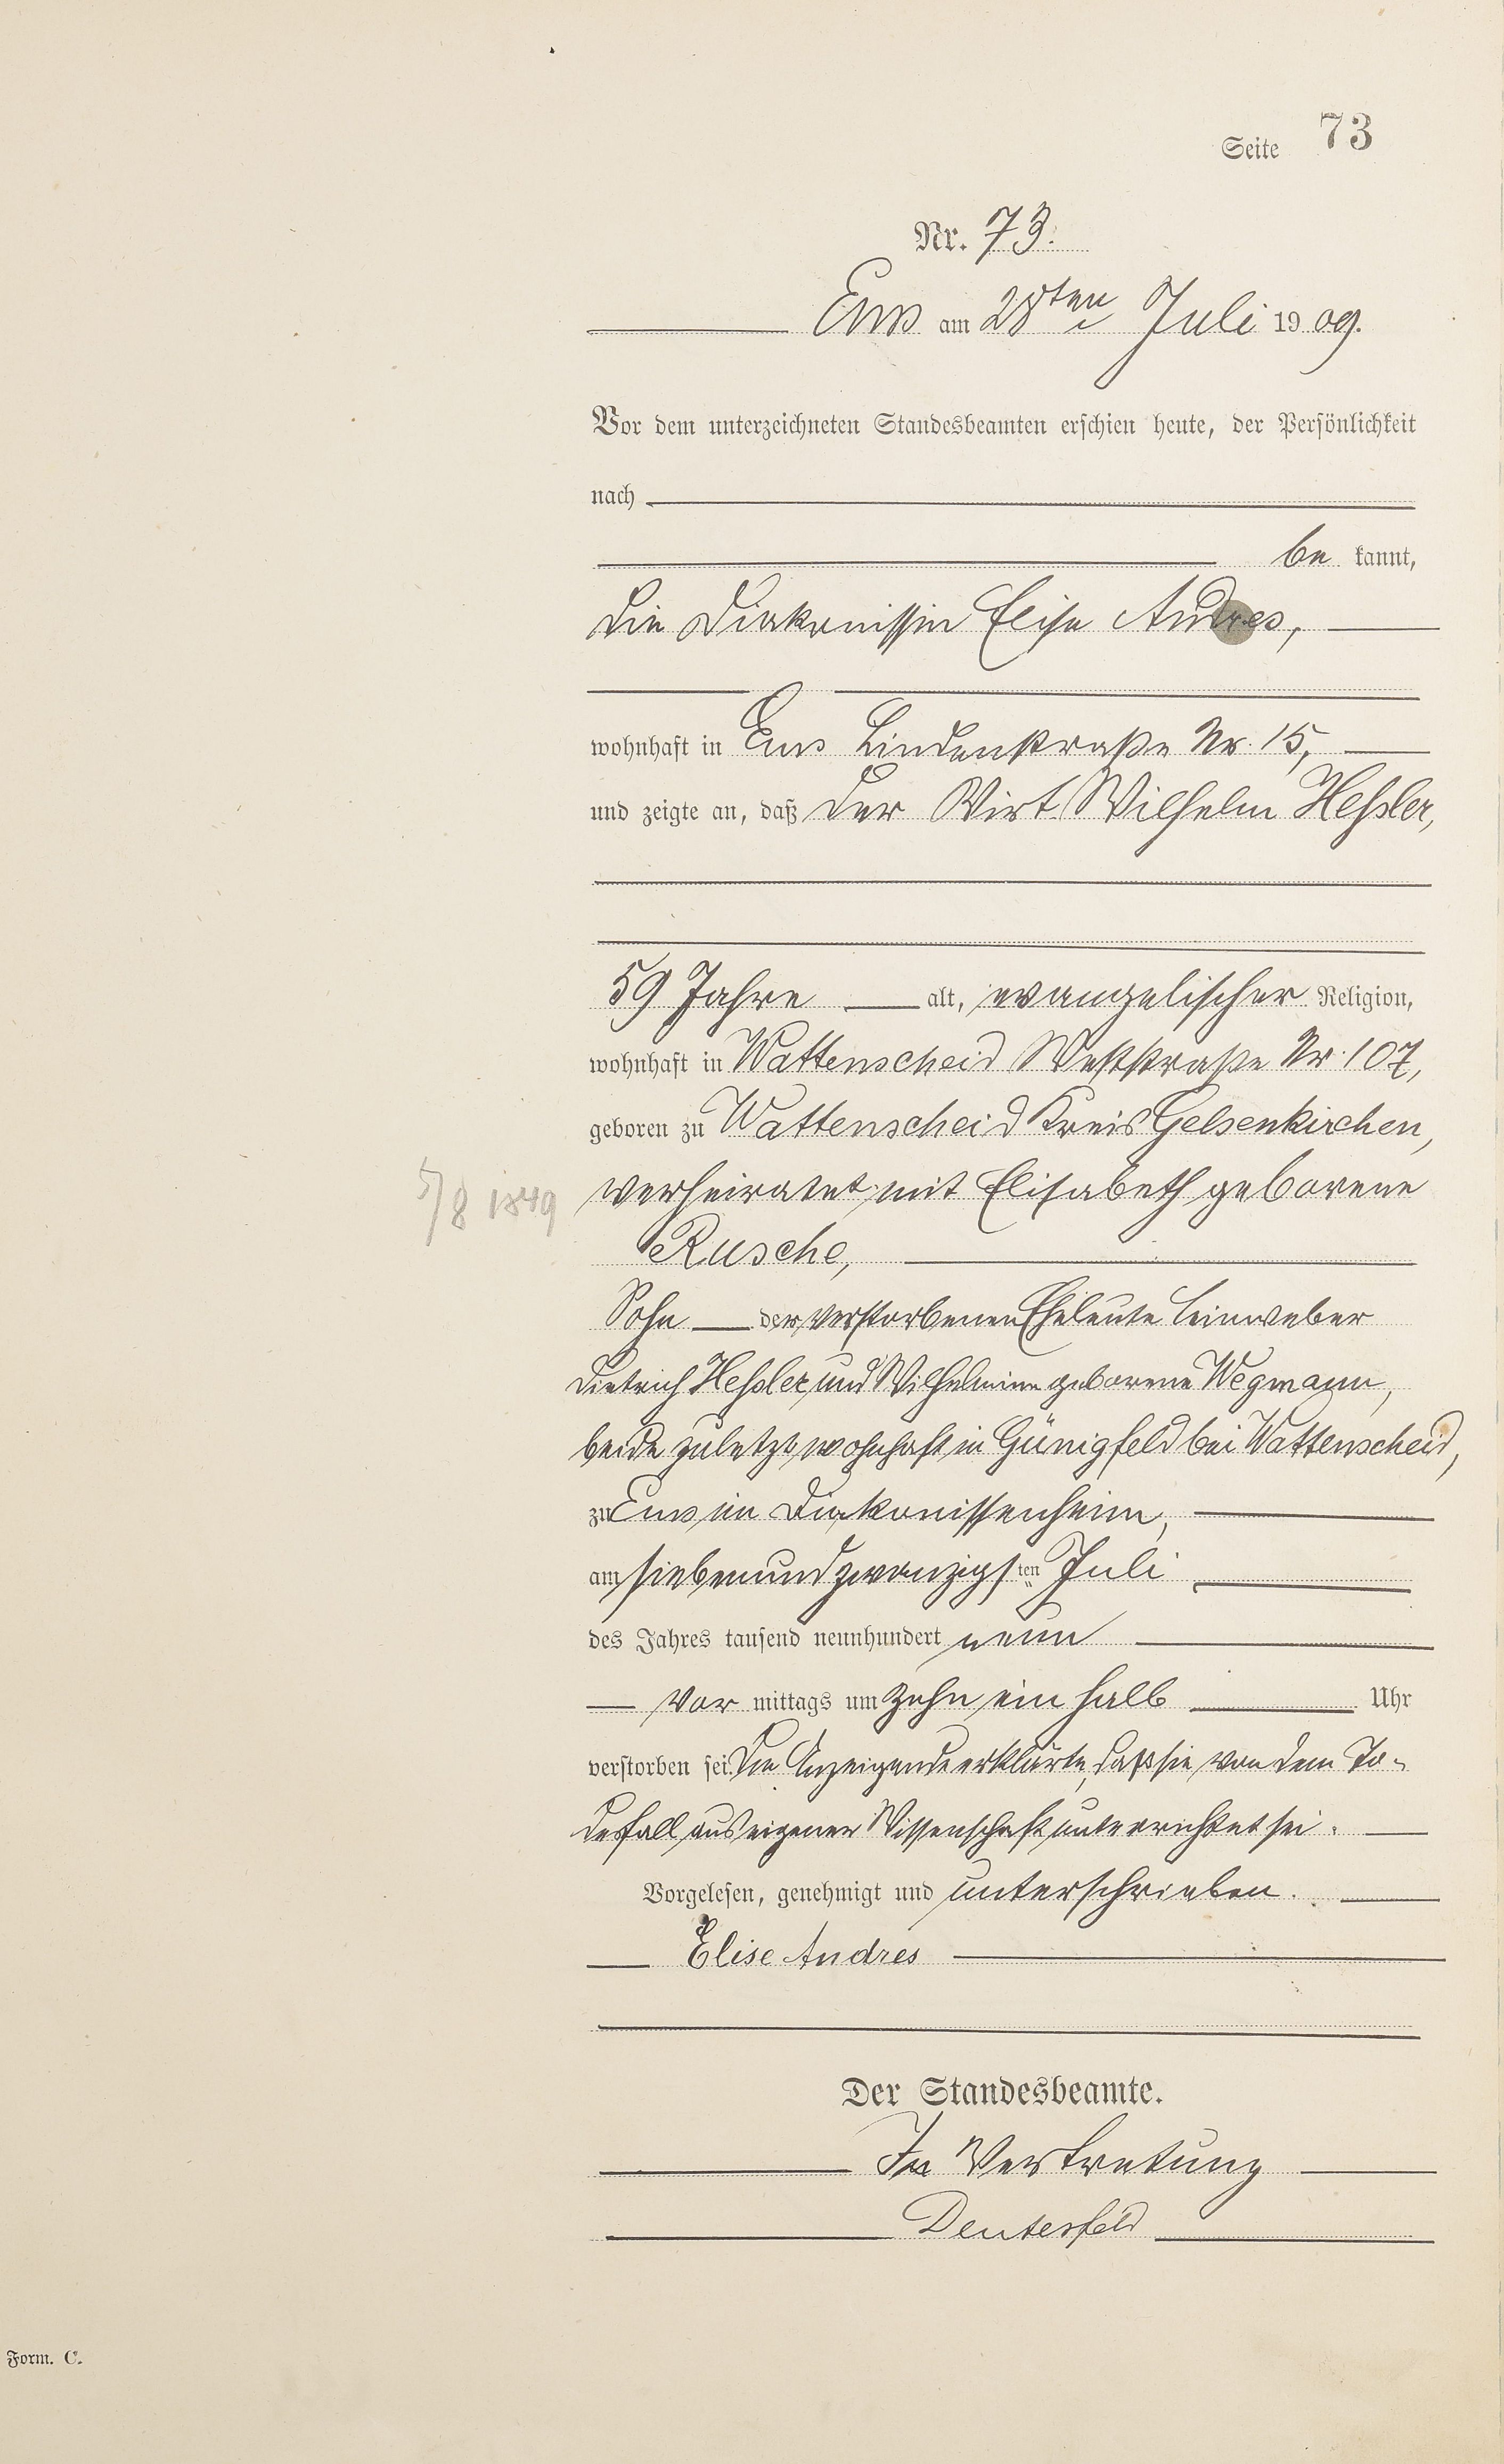 Seite 73
Nr. 73.
Ems am 28ten Juli 1909.
Vor dem unterzeichneten Standesbeamten erschien heute, der Persönlichkeit
nach
be kannt,
die Diakonissin Elise Andres,
wohnhaft in Ems Lindenstraße Nr. 15,
und zeigte an, daß der Wirt Wilhelm Heßler,
59 Jahre alt, evangelischer Religion,
wohnhaft in Wattenscheid Weststraße Nr. 107,
geboren zu Wattenscheid Kreis Gelsenkirchen,
5/8 1849 verheiratet mit Elisabeth geborene
Rusche,
Sohn der verstorbenen Eheleute Leinweber
Dietrich Heßler und Wilhelmine geborene Wegmann,
beide zuletzt wohnhaft in Günigfeld bei Wattenscheid,
zu Ems im Diakonissenheim,
am siebenundzwanzigsten Juli
des Jahres tausend neunhundert neun
vor mittags um zehn ein halb Uhr
verstorben sei. Die Anzeigende erklärte, daß sie von dem To-
desfall aus eigener Wissenschaft unterrichtet sei.
Vorgelesen, genehmigt und unterschrieben.
Elise Andres
Der Standesbeamte.
In Vertretung
Deutesfeld
Form. C.